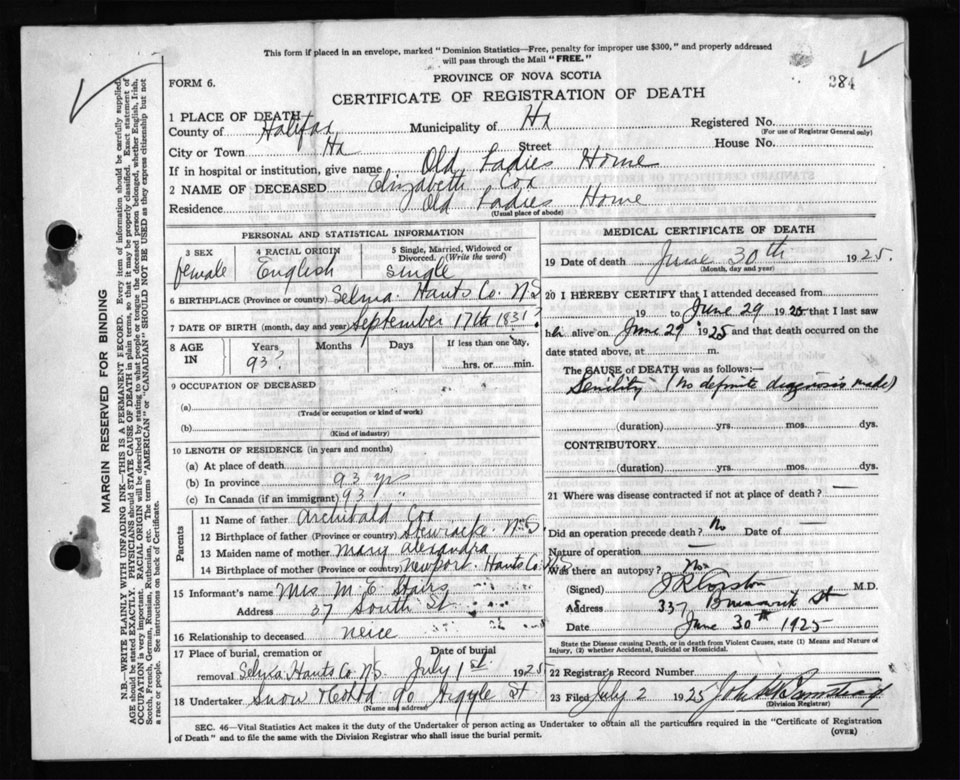 This form if placed in an envelope, marked "Dominion Statistics—Free, penalty for improper use $300," and properly addressed
will pass through the Mail "FREE."
PROVINCE OF NOVA SCOTIA
284
FORM 6.
CERTIFICATE OF REGISTRATION OF DEATH
1 PLACE OF DEATH
County of Halifax Municipality of Hx Registered No.
(For use of Registrar General only)
City or Town Hx Street House No.
If in hospital or institution, give name Old Ladies Home
2 NAME OF DECEASED Elizabeth Cox
Residence Old Ladies Home
(Usual place of abode)
PERSONAL AND STATISTICAL INFORMATION
3 SEX female
4 RACIAL ORIGIN English
5 Single, Married, Widowed or Divorced. (Write the word) single
6 BIRTHPLACE (Province or country) Selma. Hants Co. N.S
7 DATE OF BIRTH (month, day and year) September 17th 1831?
8 AGE IN Years Months Days If less than one day,
93? hrs. or min.
9 OCCUPATION OF DECEASED
(a)
(Trade or occupation or kind of work)
(b)
(Kind of industry)
10 LENGTH OF RESIDENCE (in years and months)
(a) At place of death
(b) In province 93 yrs
(c) In Canada (if an immigrant) 93 "
Parents
11 Name of father Archibald Cox
12 Birthplace of father (Province or country) Stewiacke N.S.
13 Maiden name of mother Mary Alexandra
14 Birthplace of mother (Province or country) Newport. Hants Co. N.S
15 Informant's name Mrs M E Stairs
Address 37 South St
16 Relationship to deceased neice
17 Place of burial, cremation or Date of burial
removal Selma Hants Co NS July 1st 1925
18 Undertaker Snow & Co Ltd 90 Argyle St
(Name and address)
MEDICAL CERTIFICATE OF DEATH
19 Date of death June 30th 1925.
(Month, day and year)
20 I HEREBY CERTIFY that I attended deceased from
19 to June 29 1925 that I last saw
her alive on June 29 1925 and that death occurred on the
date stated above, at m.
The CAUSE of DEATH was as follows:—
Senility (No definite diagnosis made)
(duration) yrs. mos. dys.
CONTRIBUTORY
(duration) yrs. mos. dys.
21 Where was disease contracted if not at place of death? —
Did an operation precede death? No Date of —
Nature of operation —
Was there an autopsy? No
(Signed) J R Corston M.D.
Address 337 Brunswick St
Date June 30th 1925
State the Disease causing Death, or in death from Violent Causes, state (1) Means and Nature of
Injury, (2) whether Accidental, Suicidal or Homicidal.
22 Registrar's Record Number
23 Filed July 2 1925
(Division Registrar)
SEC. 46—Vital Statistics Act makes it the duty of the Undertaker or person acting as Undertaker to obtain all the particulars required in the "Certificate of Registration
of Death" and to file the same with the Division Registrar who shall issue the burial permit.
(OVER)
MARGIN RESERVED FOR BINDING
N.B.—WRITE PLAINLY WITH UNFADING INK—THIS IS A PERMANENT RECORD. Every item of information should be carefully supplied.
AGE should be stated EXACTLY. PHYSICIANS should STATE CAUSE OF DEATH in plain terms, so that it may be properly classified. Exact statement of
OCCUPATION is very important. RACIAL ORIGIN will be described by stating to what people or tongue the deceased person belonged, whether English, Irish,
Scotch, French, German, Russian, Ruthenian, etc. The terms "AMERICAN" or "CANADIAN" SHOULD NOT BE USED as they express citizenship but not
a race or people. See instructions on back of Certificate.